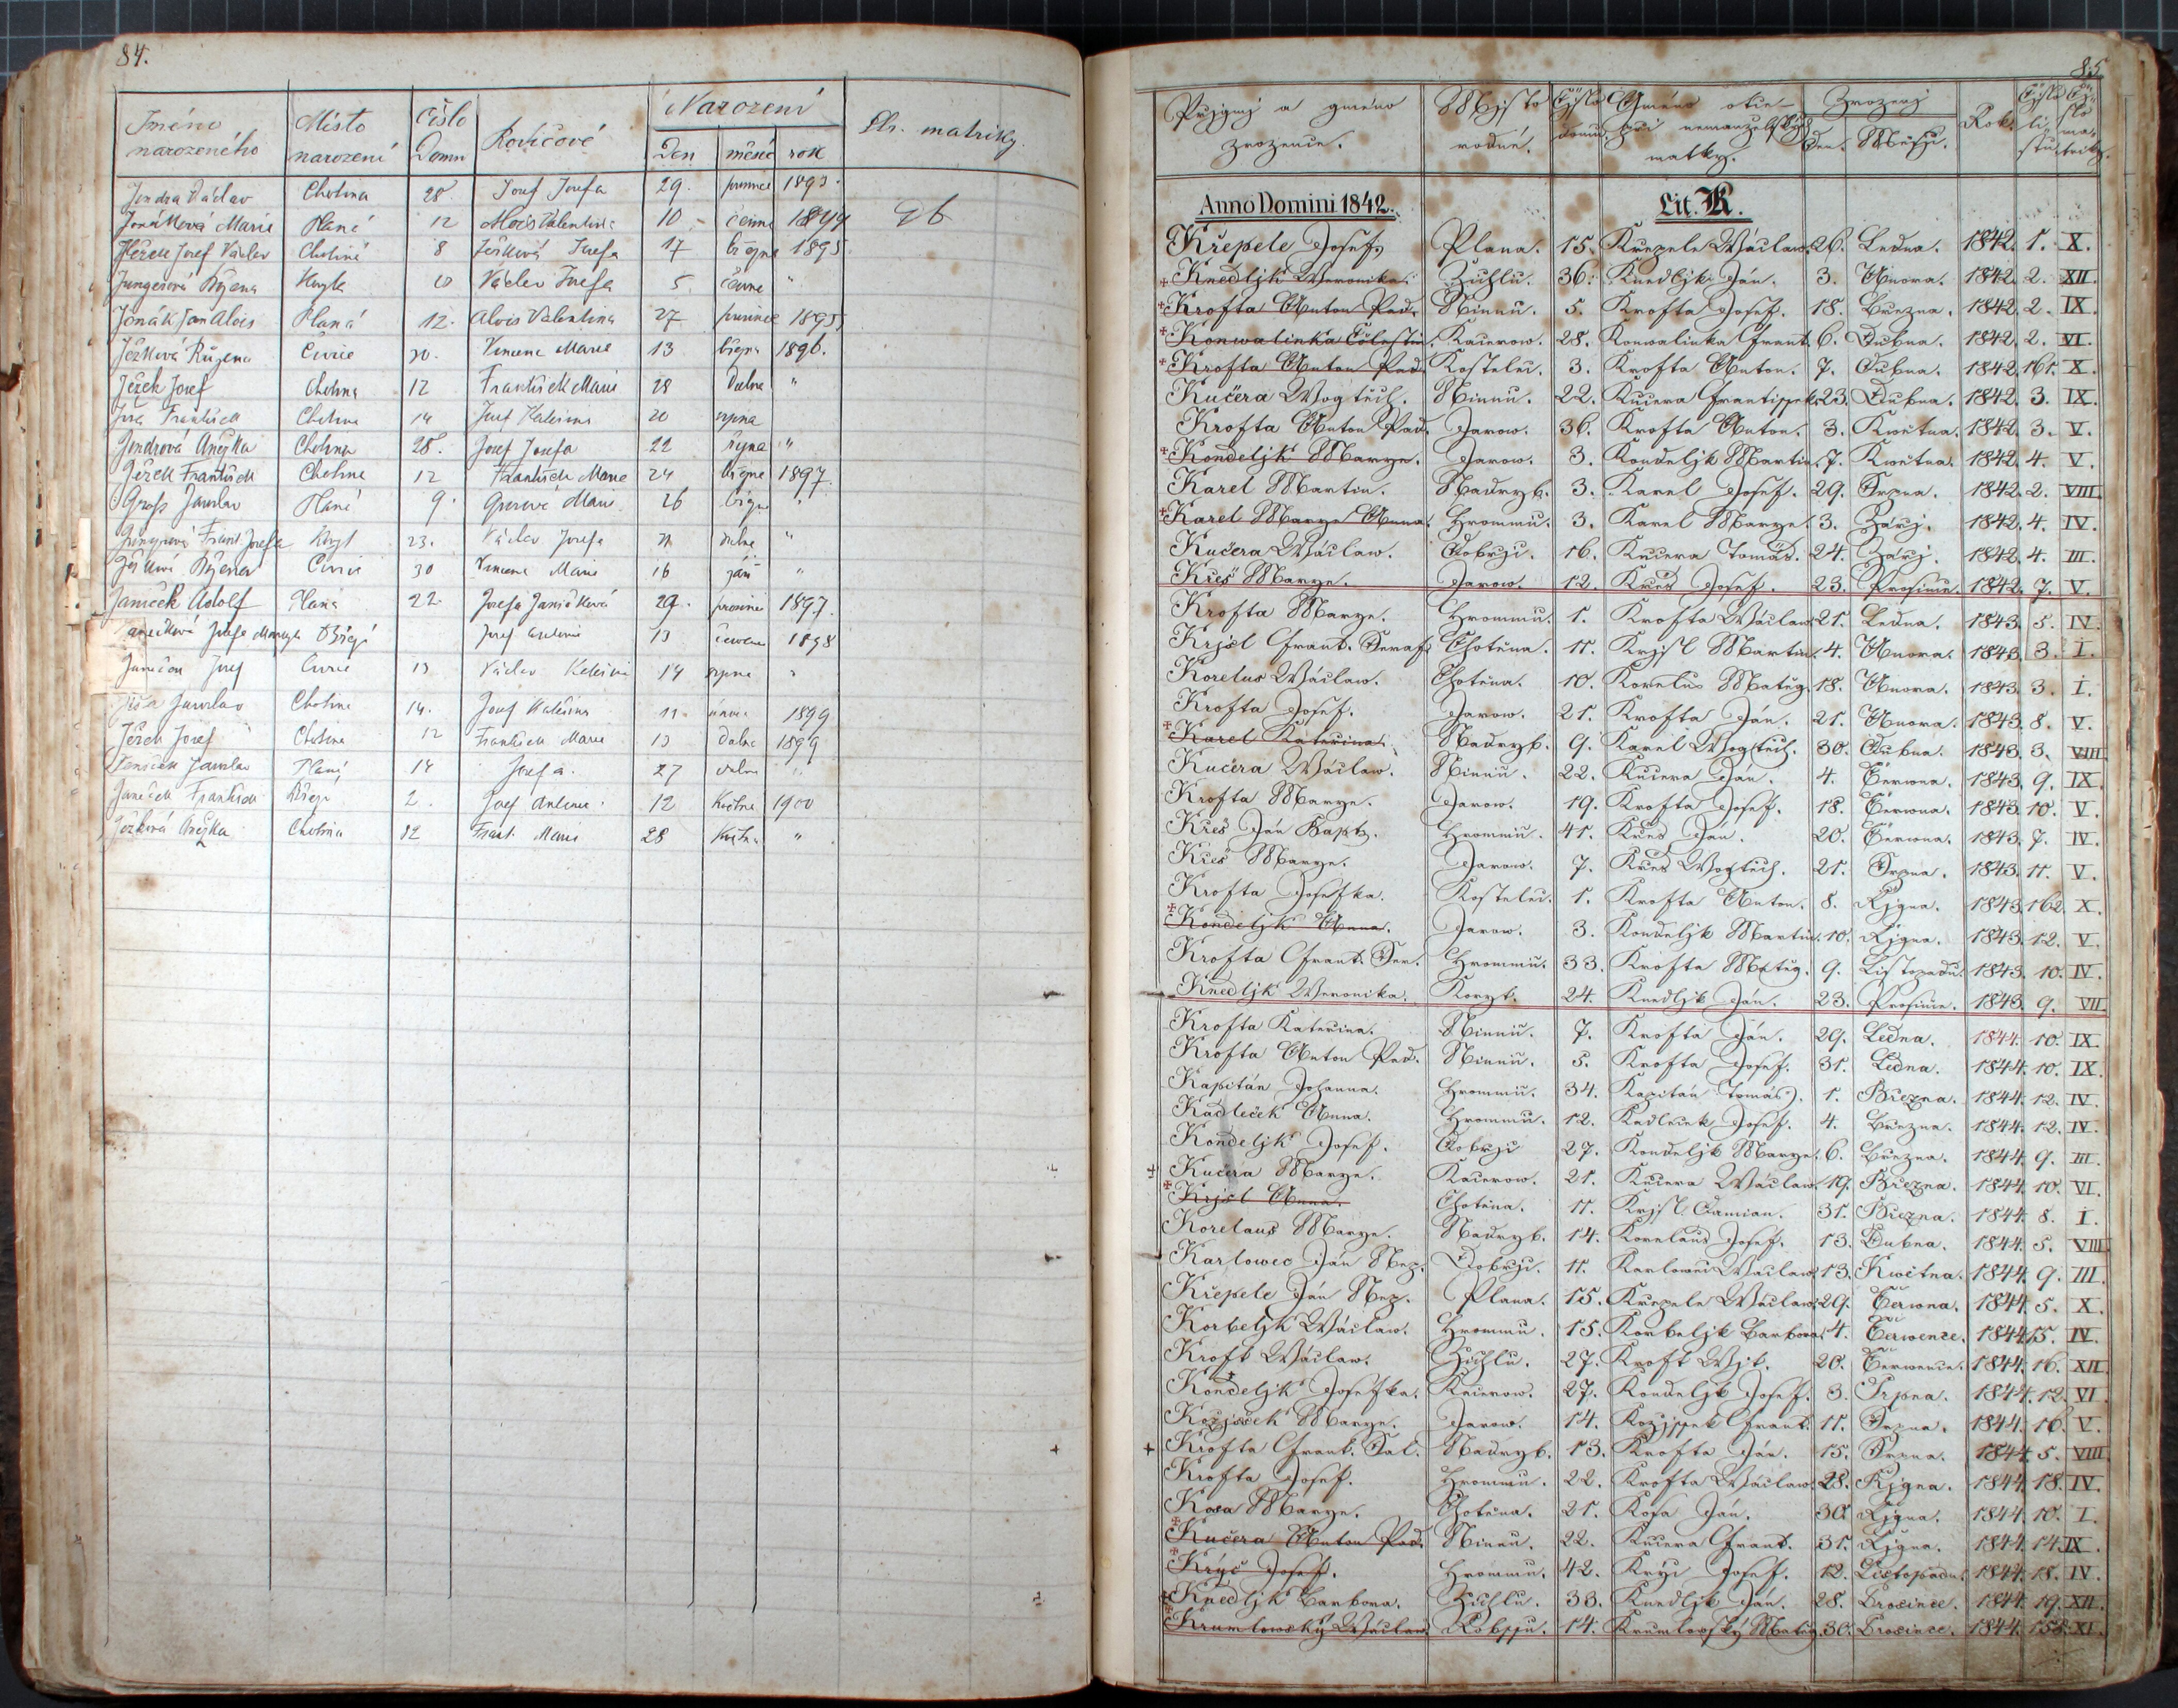 84.
Jméno narozeného Místo narození Číslo Domu Rodičové Narození Den měsíc rok Str. matriky.
Jindra Václav Chotina 28. Josef Josefa 29. prosince 1893.
Jonáková Marie Planá 12 Alois Valentina 10 června 1894 96
Ježek Josef Václav Chotiná 8 Ježková Josefa 17 března 1895.
Božena 10 Václav Josefa 5. června "
Jonák Jan Alois Planá 12. Alois Valentina 27 prosince 1895
Ježková Růžena 30. Vincenc Marie 13 března 1896.
Ježek Josef Chotina 12 František Marie 28 dubna "
František Chotina 14 Josef Kateřina 20 srpna
Jindrová Anežka Chotina 28. Josef Josefa 22 října "
Ježek František Chotina 12 František Marie 24 března 1897.
Gross Jaroslav Planá 9. Marie 26 března "
Josefa 23. Václav Josefa dubna "
Ježková Božena 30 Vincenc Marie 16 září "
Janíček Adolf Planá 22 Josefa Janíčková 29. prosince 1897.
Josefa Josef Antonie 13 července 1898
Josef 13 Václav Kateřina 14 srpna "
Jaroslav Chotina 14. Josef Kateřina 11 února 1899
Ježek Josef Chotina 12 František Marie 13 dubna 1899
Janíček Jaroslav Planá 14 Josefa. 27 dubna "
Janeček František 2. Josef Antonie 12 května 1900
Ježková Anežka Chotina 12 Frant. Marie 28 května "
85
Przigmj a gméno zrozence. Mjsto rodné. Čjslo domu Gméno otce při nemanželských matky. Zrozenj Den. Měsýc. Rok. Čjslo listu Čjslo matriky.
Anno Domini 1842. Lit. K.
Křepele Josef. Plana. 15. Křepele Wáclaw. 26. Ledna. 1842. 1. X.
Knedljk Weronika. Zichlic. 36. Knedljk Ján. 3. Února. 1842. 2. XII.
Krofta Anton Pad. Ninnic. 5. Krofta Josef. 18. Března. 1842. 2. IX.
Konwalinka Cölestin. Kacerow. 28. Konwalinka Frant. 6. Dubna. 1842. 2. VI.
Krofta Anton Pad. Kostelec. 3. Krofta Anton. 7. Dubna. 1842. 161. X.
Kučera Wogtěch. Ninnic. 22. Kučera Frantissek. 23. Dubna. 1842. 3. IX.
Krofta Anton Pad. Jarow. 36. Krofta Anton. 3. Kwětna. 1842. 3. V.
Kondeljk Marye. Jarow. 3. Kondeljk Martin. 7. Kwětna. 1842. 4. V.
Karel Martin. Nadryb. 3. Karel Josef. 29. Srpna. 1842. 2. VIII.
Karel Marye Anna. Hromnic. 3. Karel Marye. 3. Zářj. 1842. 4. IV.
Kučera Wáclaw. Dobrjc. 16. Kučera Tomáš. 24. Zářj. 1842. 4. III.
Kreš Marye. Jarow. 12. Kreš Josef. 23. Prosince. 1842. 7. V.
Krofta Marye. Hromnic. 1. Krofta Wáclaw. 21. Ledna. 1843. 5. IV.
Krjsl Frant. Seraf. Chotěna. 11. Krjsl Martin. 4. Února. 1843. 3. I.
Korelus Wáclaw. Chotěna. 10. Korelus Matěg. 18. Února. 1843. 3. I.
Krofta Josef. Jarow. 21. Krofta Ján. 21. Února. 1843. 8. V.
Karel Kateřina. Nadryb. 9. Karel Wogtěch. 30. Dubna. 1843. 3. VIII.
Kučera Wáclaw. Ninnic. 22. Kučera Ján. 4. Června. 1843. 9. IX.
Krofta Marye. Jarow. 19. Krofta Josef. 18. Června. 1843. 10. V.
Kreš Ján Bapt. Hromnic. 41. Kreš Ján. 20. Června. 1843. 7. IV.
Kreš Marye. Jarow. 7. Kreš Wogtěch. 21. Srpna. 1843. 11. V.
Krofta Josefka. Kostelec. 1. Krofta Anton. 8. Řjgna. 1843. 162. X.
Kondeljk Anna. Jarow. 3. Kondeljk Martin. 10. Řjgna. 1843. 12. V.
Krofta Frant. Ser. Hromnic. 33. Krofta Matěg. 9. Listopadu. 1843. 10. IV.
Knedljk Weronika. Koryt. 24. Knedljk Ján. 23. Prosince. 1843. 9. VII.
Krofta Kateřina. Ninnic. 7. Krofta Ján. 29. Ledna. 1844. 10. IX.
Krofta Anton Pad. Ninnic. 5. Krofta Josef. 31. Ledna. 1844. 10. IX.
Kapitán Johanna. Hromnic. 34. Kapitán Tomáš. 1. Března. 1844. 12. IV.
Kadleček Anna. Hromnic. 12. Kadleček Josef. 4. Března. 1844. 12. IV.
Kondeljk Josef. Dobrjc 27. Kondeljk Marye. 6. Března. 1844. 9. III.
Kučera Marye. Kacerow. 21. Kučera Wáclaw. 19. Března. 1844. 10. VI.
Krjsl Anna. Chotěna. 11. Krjsl Damian. 31. Března. 1844. 8. I.
Korelaus Marye. Nadryb. 14. Korelaus Josef. 13. Dubna. 1844. 5. VIII.
Karlowec Ján Nep. Dobrjc. 11. Karlowec Wáclaw. 13. Kwětna. 1844. 9. III.
Křepele Ján Nep. Plana. 15. Křepele Wáclaw. 29. Června. 1844. 5. X.
Korbeljk Wáclaw. Hromnic. 15. Korbeljk Barbora. 4. Července. 1844. 15. IV.
Kroft Wáclaw. Zichlic. 27. Kroft Wjt. 20. Července. 1844. 16. XII.
Kondeljk Josefka. Kacerow. 27. Kondeljk Josef. 3. Srpna. 1844. 12. VI.
Kozjšek Marye. Jarow. 14. Kozjssek Frant. 11. Srpna. 1844. 16. V.
Krofta Frant. Sal. Nadryb. 13. Krofta Ján. 15. Srpna. 1844. 5. VIII.
Krofta Josef. Hromnic. 22. Krofta Wáclaw. 28. Řjgna. 1844. 18. IV.
Kosa Marye. Chotěna. 21. Kosa Ján. 30. Řjgna. 1844. 10. I.
Kučera Anton Pad. Ninnic. 22. Kučera Frant. 31. Řjgna. 1844. 14. IX.
Krýč Josef. Hromnic. 42. Krýč Josef. 12. Listopadu. 1844. 18. IV.
Knedljk Barbora. Zichlic. 33. Knedljk Ján. 28. Prosince. 1844. 19. XII.
Krumlowský Wáclaw. 14. Krumlowský Matěg. 30. Prosince. 1844. 158. XI.